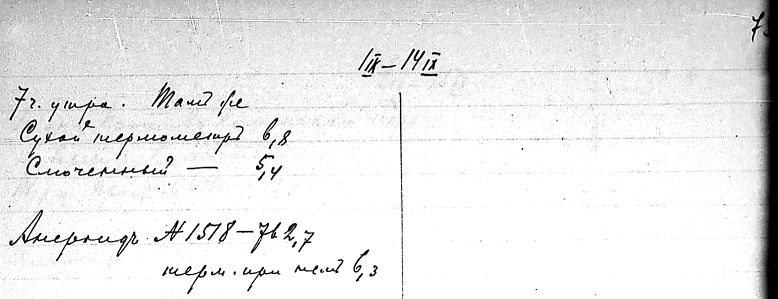 7
1 IX – 14 IX
7 ч. утра. Тамъ же
Сухой термометръ 6,8
Смоченный — 5,4
Анероидъ № 1518 – 762,7
терм. при немъ 6,3